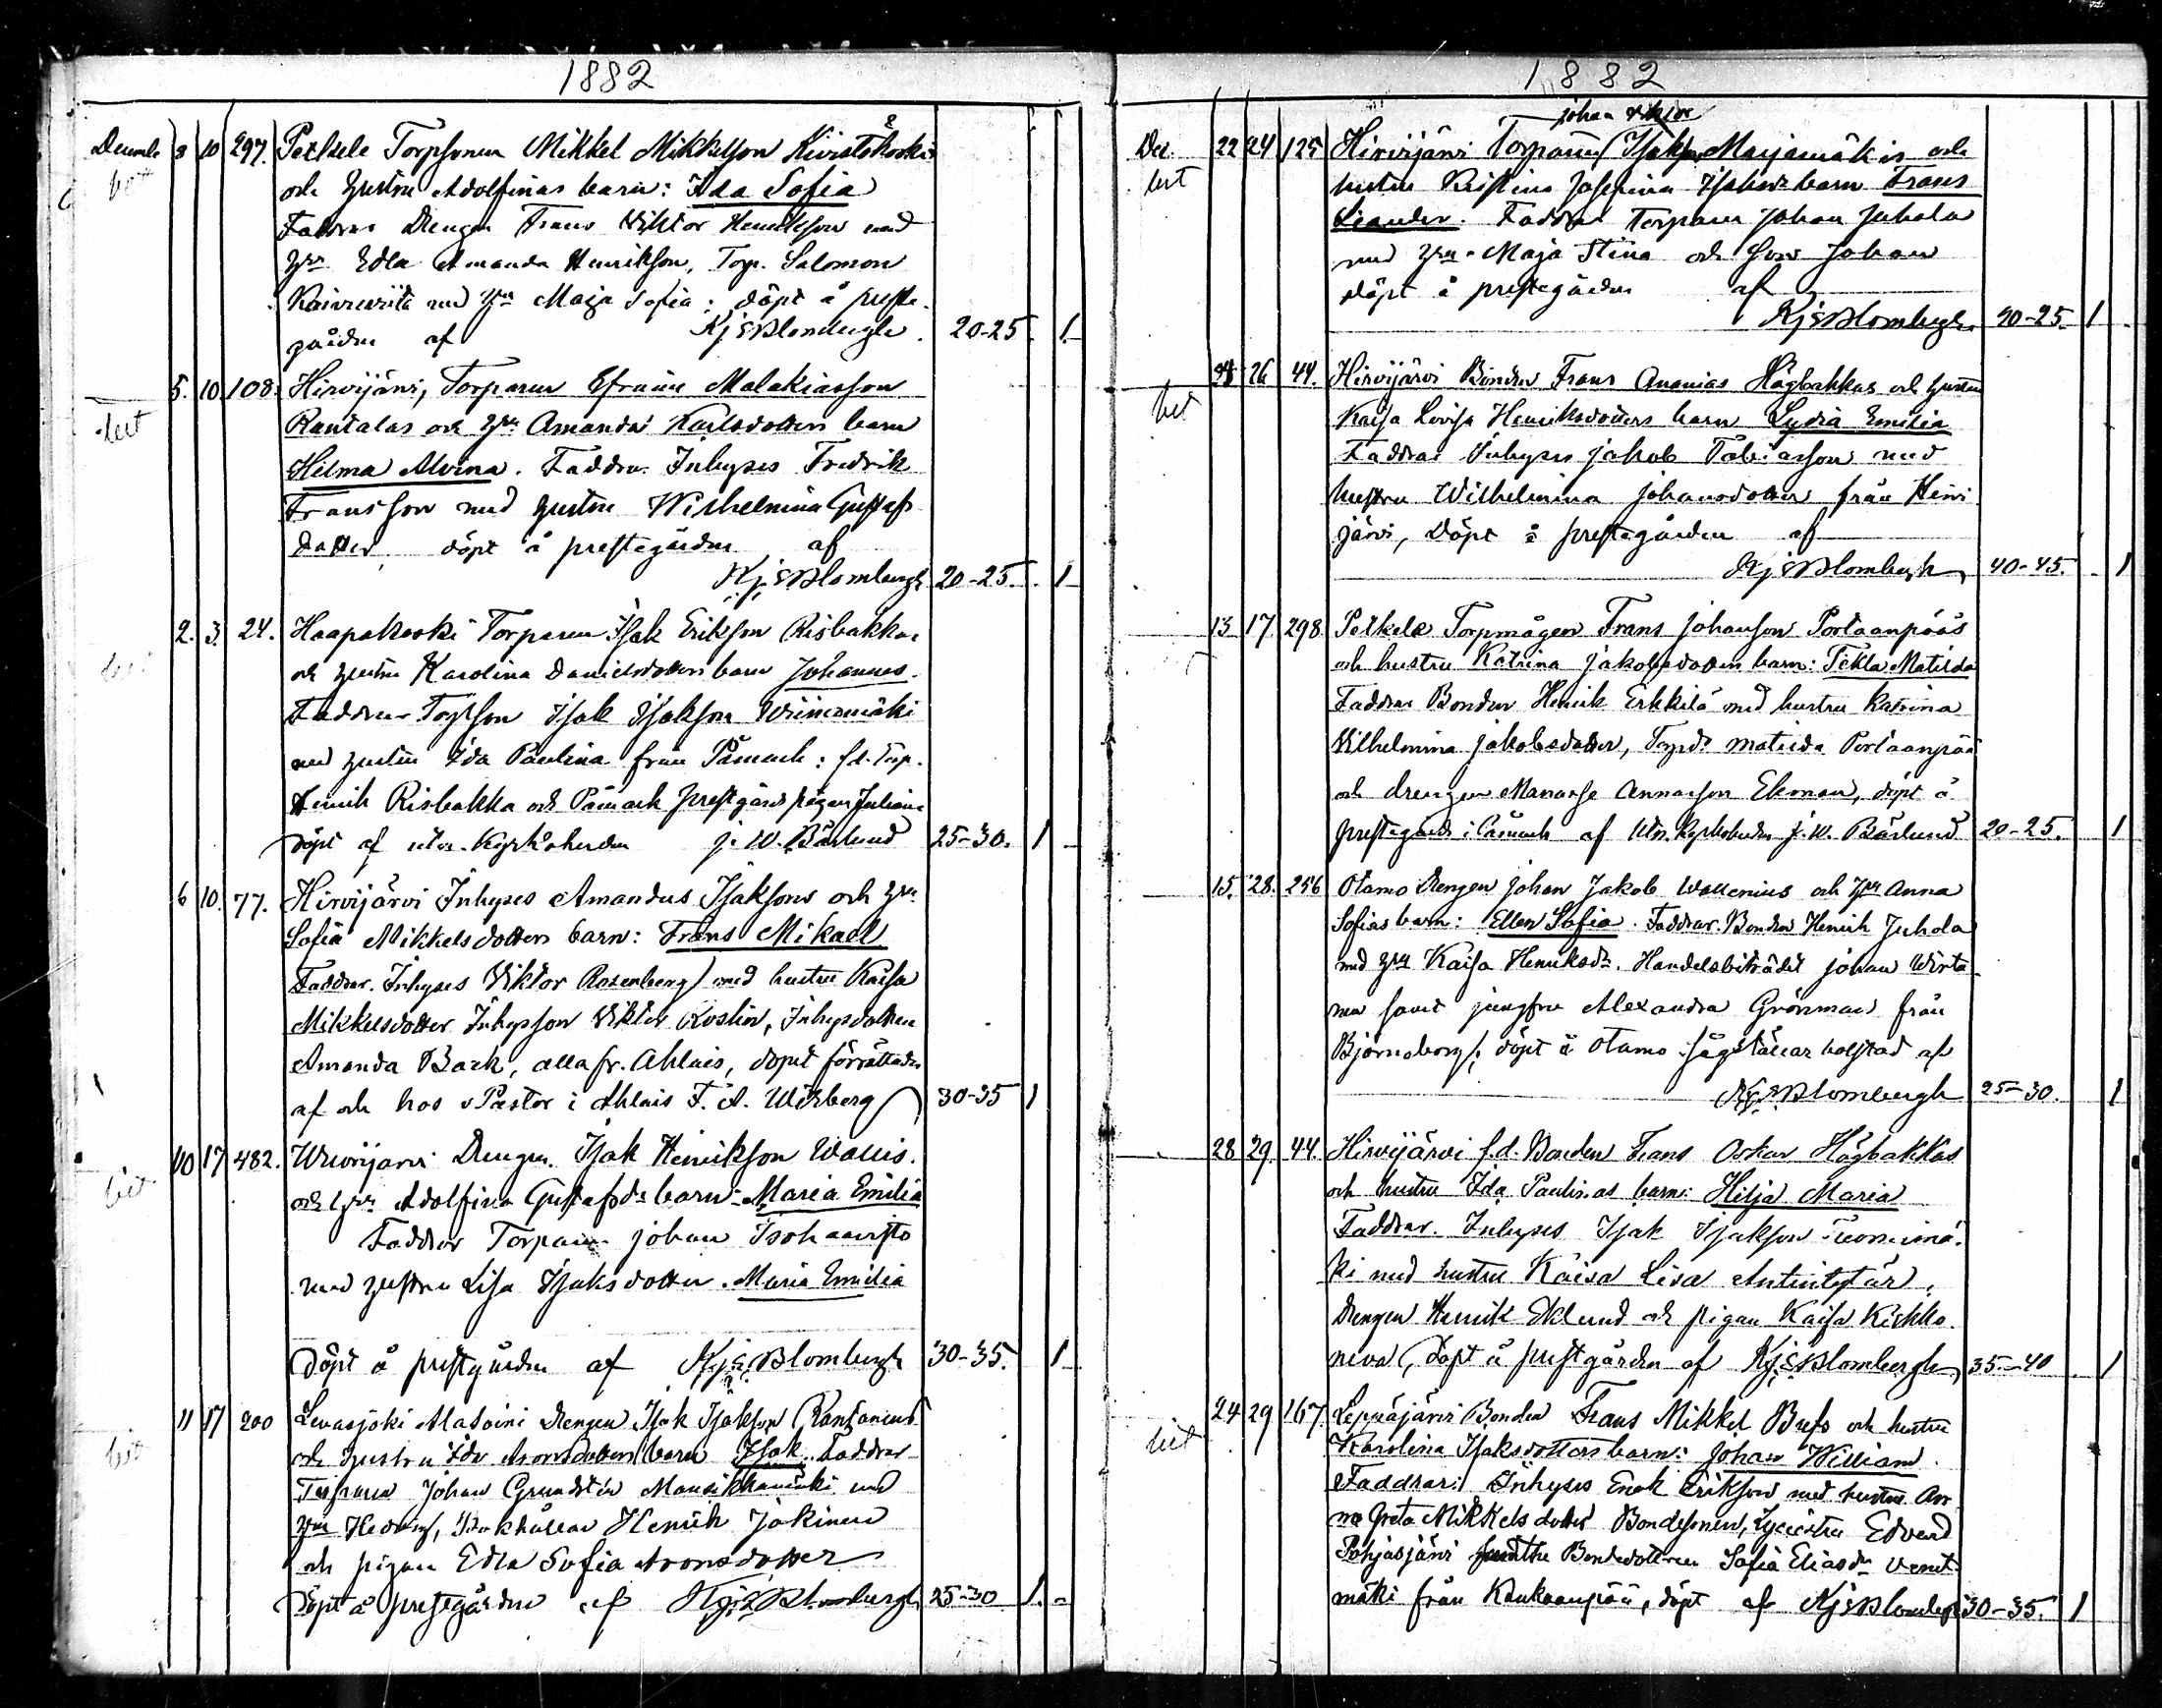 1882
Decemb 3 10 297. Petkele Torpsonen Mikkel Mikkelson Kivistökoskis
bet och hustru Adolfinas barn: Ida Sofia
Faddrar Drengen Frans Viktor Henrikson med
hru Edla Amanda Henrikson, Torp. Salomon
med hru Maja Sofia; döpt å preste-
gården af KjEBlombergh. 20-25. 1
5. 10. 108. Hirvijärvi, Torparen Efraim Malakiasson
bet Rantalas och hru Amanda Karlsdotters barn
Hilma Alvina. Faddrar Inhyses Fredrik
Fransson med hustru Wilhelmina Gustafs
dotter, döpt å prestegården af
KjEBlombergh 20-25. 1
2. 3. 24. Haapakoski Torparen Isak Erikson Risbakkas
och hustru Karolina Danielsdotters barn Johannes.
Faddrar Torpson Isak Isakson
med hustru Ida Paulina från Påmark: f.d. Torp.
Henrik Risbakka och Påmark prestgårds pigan Juliana
döpt af Kyrkoherden J. W. Bärlund 25-30. 1
6 10. 77. Hirvijärvi Inhyses Amandus Isaksons och hru
Sofia Mikkelsdotters barn: Frans Mikael
Faddrar. Inhyses Viktor Rosenberg med hustru Kaisa
Mikkelsdotter Inhysson Viktor Koslin, Inhysdottren
Amanda Back, alla fr. Ahlais, dopet förrättades
af och hos v Pastor i Ahlais F. A. Widberg 30-35 1
10 17 482. Drengen Isak Henrikson Wallis.
bet och hru Adolfina Gustafsds barn: Maria Emilia
Faddrar Torparen Johan Isohaavisto
med hustru Lisa Isaksdotter. Maria Emilia
Döpt å prestgården af KjEBlombergh 30-35. 1
11 17 200 Levasjoki Alatoini Drengen Isak Isakson Rantanens
bet och hustru Ida Aronsdotters barn Isak. Faddrar
Torparen Johan Grundström Mansikkamäki med
hru Hedvig, Bokhållar Henrik Jokinen
och pigan Edla Sofia Aronsdotter
Döpt å prestegården af KjEBlombergh 25-30 1
1882
Johan Viktor
Dec. 22 24 125 Hirvijärvi Torparen Isakson Marjamäkis och
bet hustru Kristina Josefina Isaksds barn Frans
Leander. Faddrar Torparen Johan Juhola
med hru Maja Stina och son Johan
döpt å prestegården af
KjEBlombergh. 20-25. 1
26 44. Hirvijärvi Bonden Frans Ananias Högbakkas och hustru
bet Kaisa Lovisa Henriksdotters barn Lydia Emilia
Faddrar Inhyses Jakob Tobiasson med
hustru Wilhelmina Johansdotter från Hirvi
järvi, Döpt å prestegården af
KjEBlombergh 40-45. 1
13 17. 298. Petkele Torpmågen Frans Johanson Portaanpääs
och hustru Katrina Jakobsdotters barn: Tekla Matilda
Faddrar Bonden Henrik Erkkilä med hustru Katrina
Vilhelmina Jakobsdotter, Torpds Matilda Portaanpää
och drengen Manasse Annasson Ekman, döpt å
prestegården i Påmark af Kyrkoherden J. W. Bärlund 20-25. 1
15. 28. 256 Otamo Drengen Johan Jakob Wallenius och hru Anna
Sofias barn: Ellen Sofia. Faddrar. Bonden Henrik Juhola
med hru Kaisa Henriksdr. Handelsbiträdet Johan Wirta
nen samt jungfru Alexandra Grönman från
Björneborg, döpt å Otamo såg af
KjEBlombergh 25-30. 1
28 29. 44. Hirvijärvi f.d. Bonden Frans Oskar Högbakkas
och hustru Ida Paulinas barn: Hilja Maria
Faddrar. Inhyses Isak Isakson
ki med hustru Kaisa Lisa Antintytär,
Drengen Henrik Eklund och pigan Kaisa Kirkko-
neva, Döpt å prestgården af KjEBlombergh 35-40 1
24 29 167. Leppäjärvi Bonden Frans Mikkel Bufs och hustru
bet Karolina Isaksdotters barn: Johan William.
Faddrar: Inhyses Enok Erikson med hustru An
na Greta Mikkelsdotter Bondesonen, Edvard
Pohjasjärvi Bondedottren Sofia Eliasdr
mäki från Kankaanpää, döpt af KjEBlombergh 30-35. 1